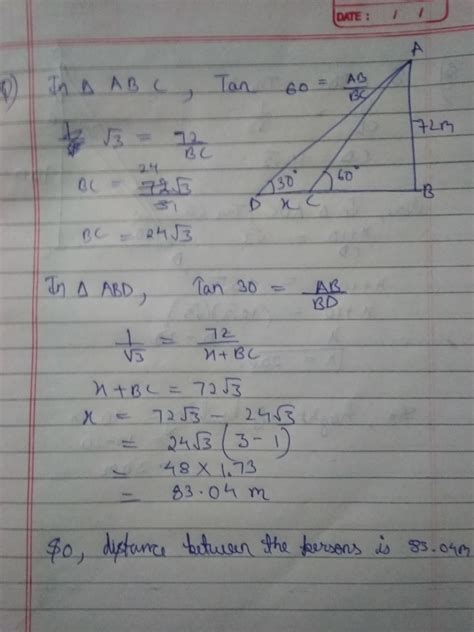 DATE: / /
In Δ ABC, Tan 60 = AB/BC
√3 = 72/BC
BC = 72√3
24
1
BC = 24√3
A
72m
30°
60°
D x C B
In Δ ABD, Tan 30 = AB/BD
1/√3 = 72/x+BC
x+BC = 72√3
x = 72√3 - 24√3
= 24√3 (3-1)
= 48 × 1.73
= 83.04 m
So, distance between the persons is 83.04m